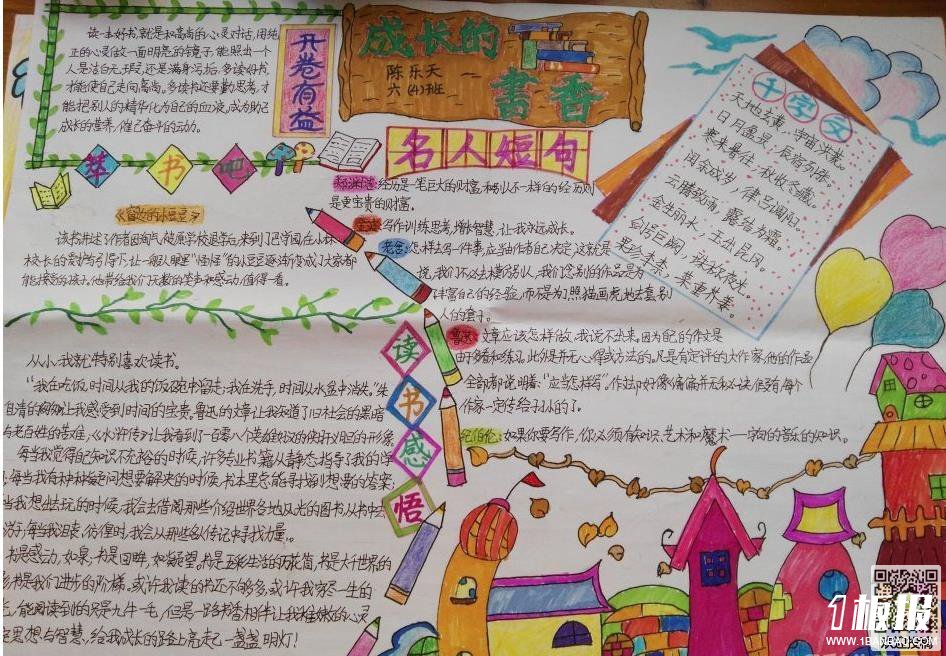 成长的
書香
陈乐天
六(4)班
开卷有益
读一本好书,就是和高尚的心灵对话,用纯
正的心灵做一面明亮的镜子,能照出一个
人是洁白无瑕,还是满身污垢,多读好书,
才能使自己走向高尚。多读书还要勤思考,才
能把别人的精华化为自己的血液,成为助己
成长的营养,催己奋斗的动力。
千字文
天地玄黄,宇宙洪荒。
日月盈昃,辰宿列张。
寒来暑往,秋收冬藏。
闰余成岁,律吕调阳。
云腾致雨,露结为霜。
金生丽水,玉出昆冈。
剑号巨阙,珠称夜光。
果珍李柰,菜重芥姜。
书吧
《窗边的小豆豆》
该书讲述了作者因淘气被原学校退学后,来到了巴学园,在小林
校长的爱护
能接受的孩子。他带给我们无数的笑声和感动,值得一看。
名人短句
郑渊洁:经历是一笔巨大的财富,和别人不一样的经历则
是更宝贵的财富。
写作训练思考,增长智慧,让我久远成长。
老舍:怎样去写一件事,应当作者自己决定,这就是
说,我们不必去模仿别人,我们念别的作品是为
丰富自己的经验,而不是为了照猫画虎地去套别
人的套子。
鲁迅:文章应该怎样做,我说不出来,因为自己的作文是
由于多看和练习,此外是并无心得或方法的。凡是有定评的大作家,他的作品
全部都说明着:“应当怎样写”。作
作家一定传给子孙的了。
纪伯伦:如果你要写作,你必须有知识、艺术和魔术——字句的音乐的知识。
读书感悟
从小,我就特别喜欢读书。
“我在吃饭,时间从我的饭碗中留走;我在洗手,时间从水盆中消失。”朱
自清的匆匆让我感受到时间的宝贵。鲁迅的文章让我知道了旧社会的黑暗
与老百姓的苦难,《水浒传》让我看到了一百零八个英雄好汉的侠肝义胆的形象。
每当我觉得自己知识不充裕的时候,许多专业书籍从静态指导了我的学
每当我有种种疑问想要解决的时候,书本里总能寻找到想要的答案;
当我想出去玩的时候,我会去借阅那些介绍世界各地风光的图书,从书中去
游历;每当我沮丧、彷徨时,我会从那些名人传记中寻找力量。
书是感动,如泉,书是回眸,如凝望,书是五彩生活的万花筒,书是大千世界的
书是我们进步的阶梯,或许我读的书还不够多,或许我穷尽一生的
能阅读到的只是九牛一毛,但是一路书香相伴,让我稚嫩的心灵
思想与智慧,给我成长的路上亮起一盏盏明灯!
1板报
WWW.1BANBAO.COM
欢迎投稿